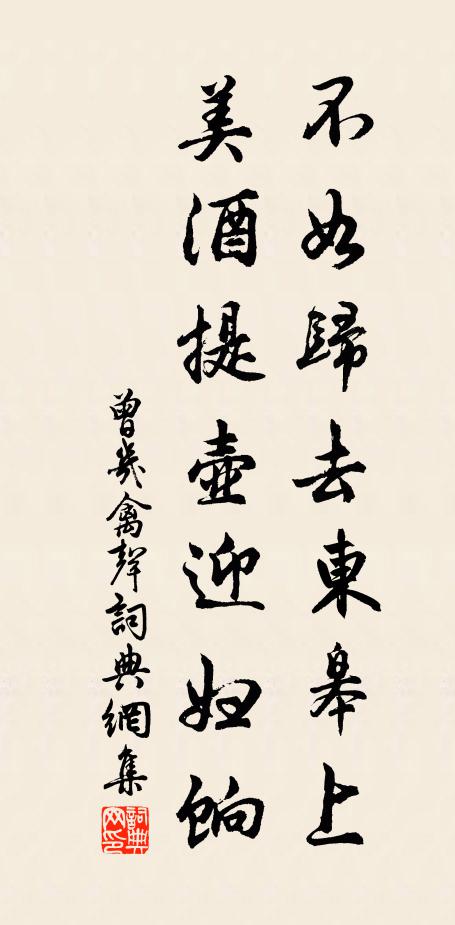 不如歸去東皋上
美酒提壺迎婦餉
曾幾禽聲詞典網集
詞典網印